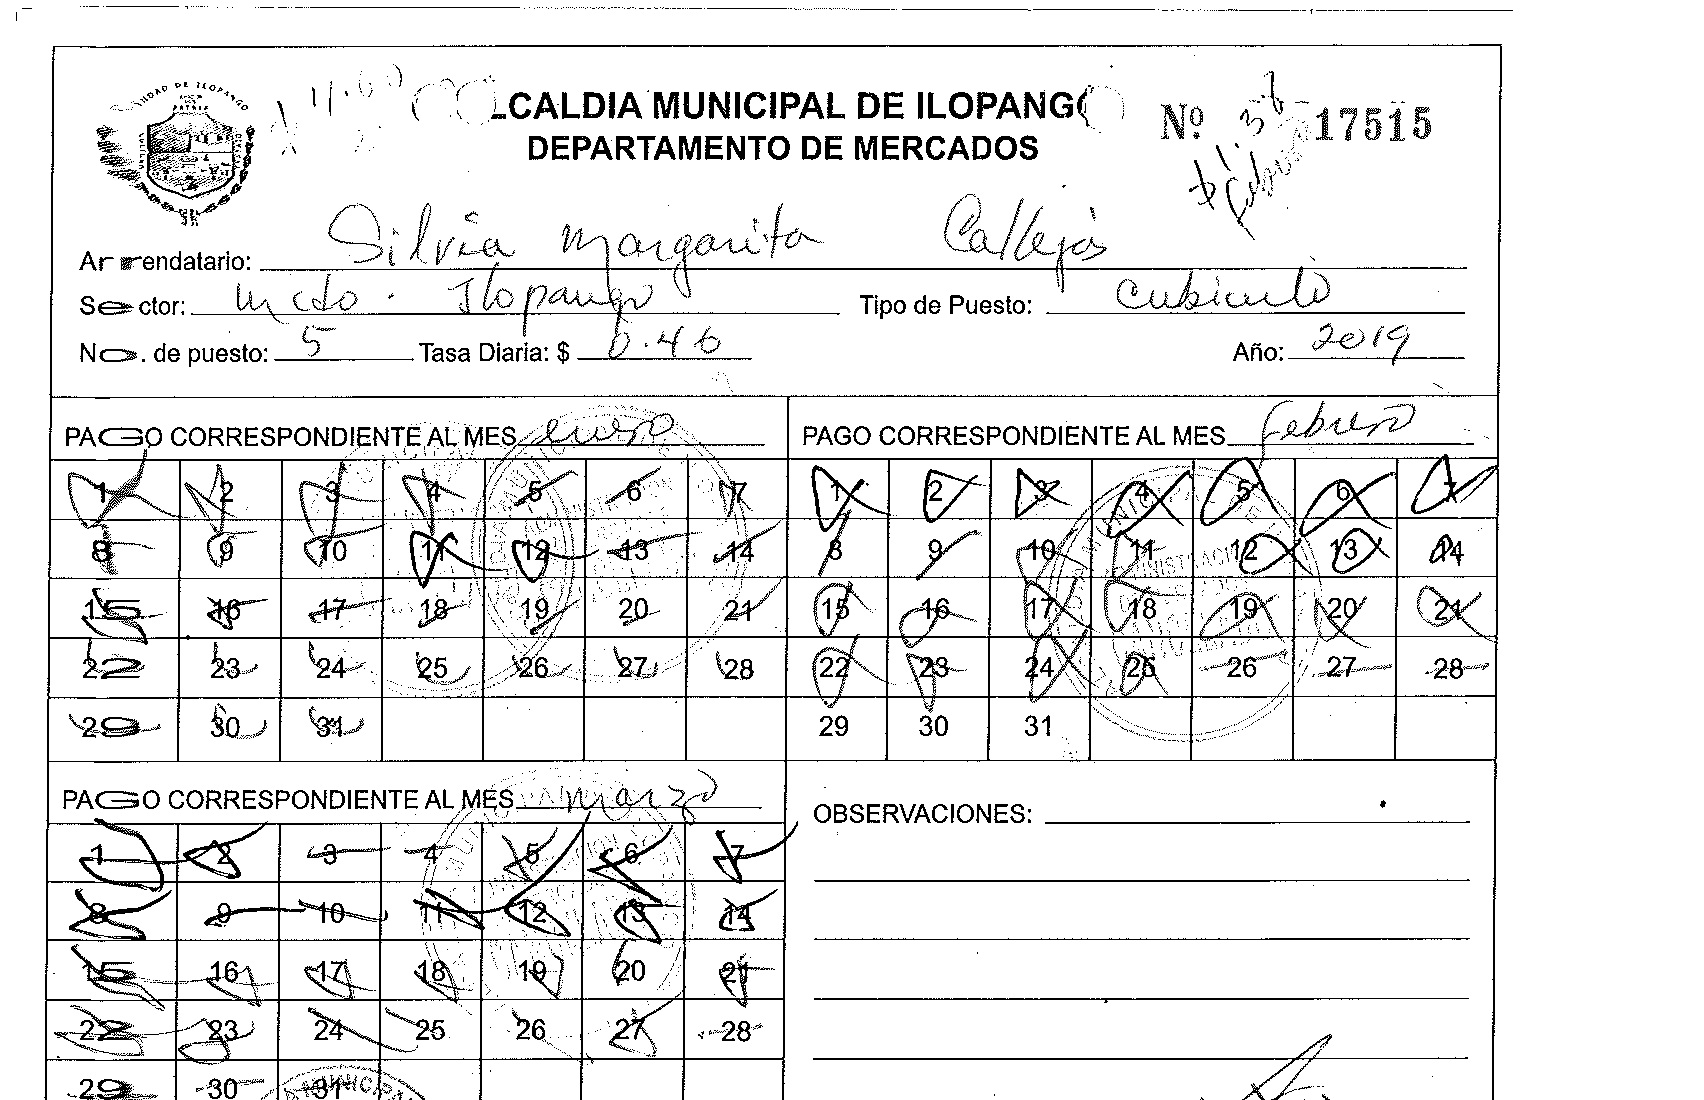 CALDIA MUNICIPAL DE ILOPANGO
DEPARTAMENTO DE MERCADOS
Nº 17515
$1.38
febrero
Arrendatario: Silvia Margarita Callejas
Sector: Mcdo. Ilopango Tipo de Puesto: Cubiculo
No. de puesto: 5 Tasa Diaria: $ 0.46 Año: 2019
PAGO CORRESPONDIENTE AL MES enero
1 2 3 4 5 6 7
8 9 10 11 12 13 14
15 16 17 18 19 20 21
22 23 24 25 26 27 28
29 30 31
PAGO CORRESPONDIENTE AL MES febrero
1 2 3 4 5 6 7
8 9 10 11 12 13 14
15 16 17 18 19 20 21
22 23 24 25 26 27 28
29 30 31
PAGO CORRESPONDIENTE AL MES marzo
1 2 3 4 5 6 7
8 9 10 11 12 13 14
15 16 17 18 19 20 21
22 23 24 25 26 27 28
29 30 31
OBSERVACIONES: